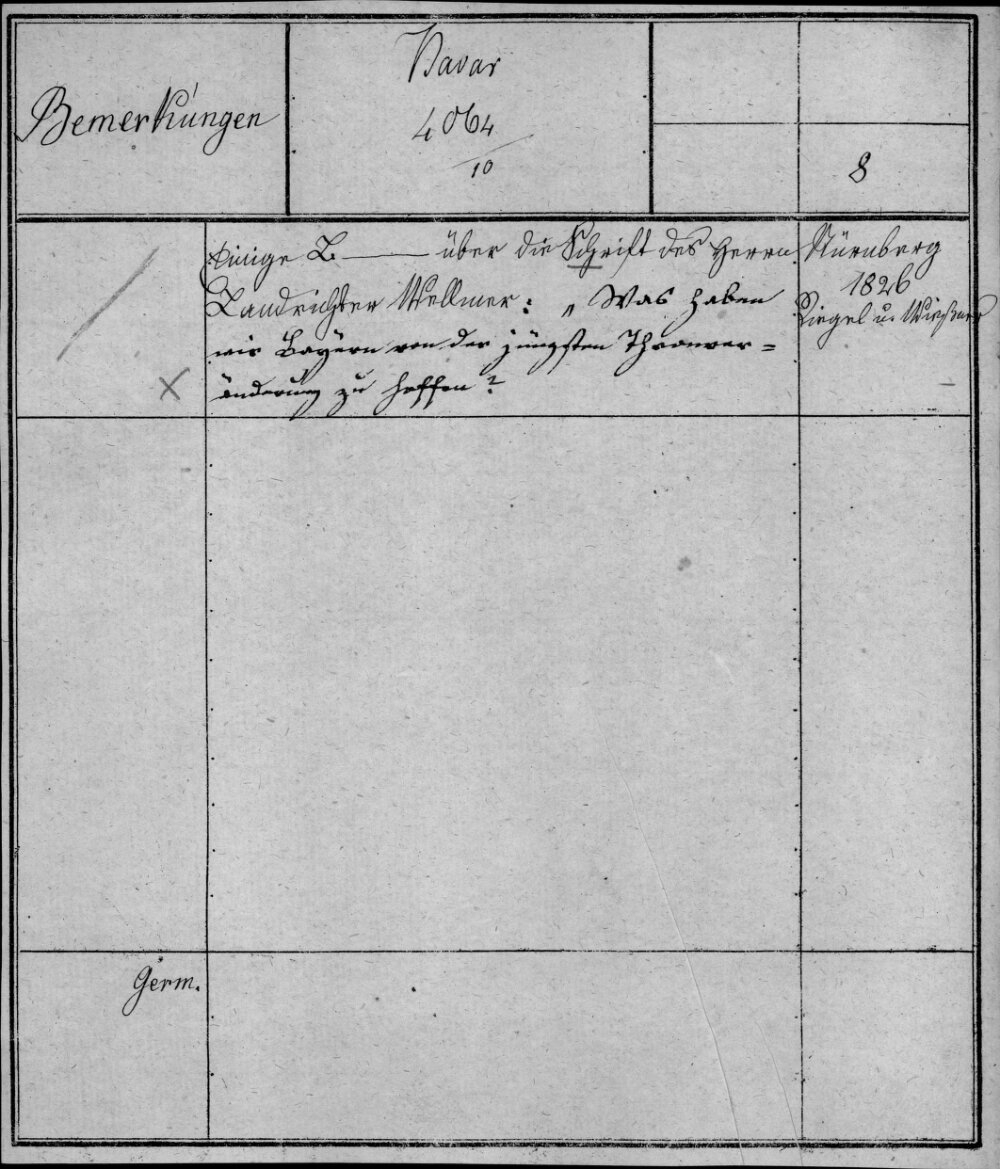 Bemerkungen
Bavar
4064
10
8
Einige B. — über die Schrift des Herrn
Landrichter Wellmer: „Was haben
wir Bayern von der jüngsten Thronver=
änderung zu hoffen?
Nürnberg
1826
Riegel u. Wießner
Germ.